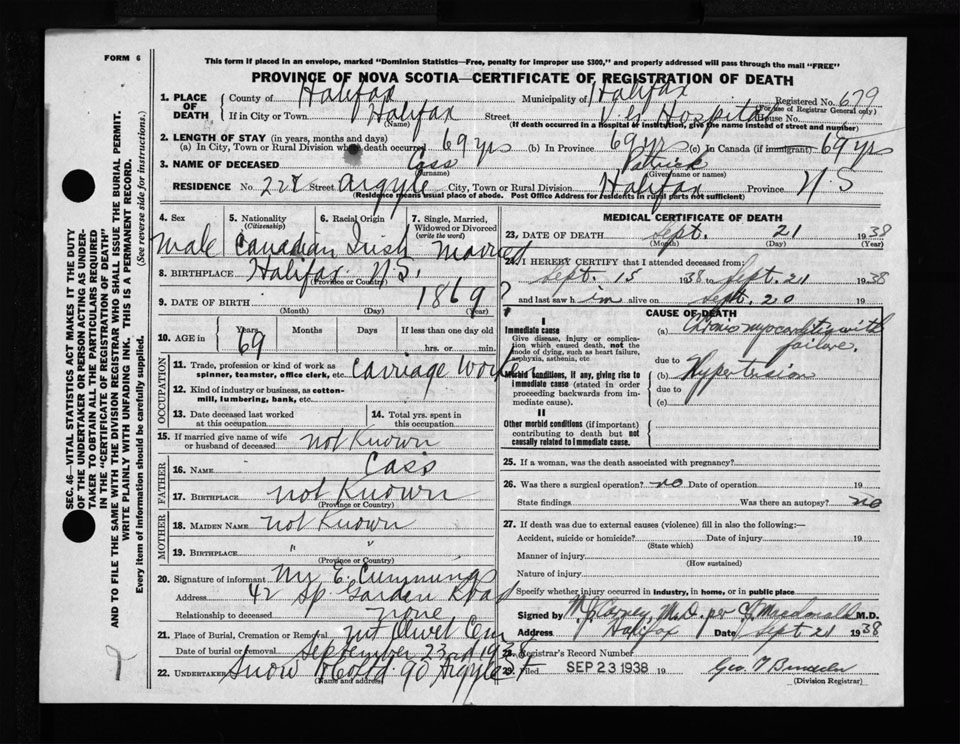 FORM 6
This form if placed in an envelope, marked "Dominion Statistics—Free, penalty for improper use $300," and properly addressed will pass through the mail "FREE"
PROVINCE OF NOVA SCOTIA—CERTIFICATE OF REGISTRATION OF DEATH
1. PLACE OF DEATH County of Halifax Municipality of Halifax Registered No. 679
(For use of Registrar General only)
If in City or Town Halifax Street V. G. Hospital House No.
(Name) (If death occurred in a hospital or institution, give the name instead of street and number)
2. LENGTH OF STAY (in years, months and days)
(a) In City, Town or Rural Division where death occurred 69 yrs (b) In Province 69 yrs (c) In Canada (if immigrant) 69 yrs
3. NAME OF DECEASED Cass Patrick
(Surname) (Given name or names)
RESIDENCE No. 227 Street Argyle City, Town or Rural Division Halifax Province N S
(Residence means usual place of abode. Post Office Address for residents in rural parts not sufficient)
4. Sex 5. Nationality 6. Racial Origin 7. Single, Married,
(Citizenship) Widowed or Divorced
(write the word)
Male Canadian Irish Married
8. BIRTHPLACE Halifax N.S.
(Province or Country)
9. DATE OF BIRTH 1869?
(Month) (Day) (Year)
10. AGE in Years Months Days If less than one day old
69 hrs. or min.
OCCUPATION
11. Trade, profession or kind of work as
spinner, teamster, office clerk, etc. Carriage Worker
12. Kind of industry or business, as cotton-
mill, lumbering, bank, etc.
13. Date deceased last worked at this occupation
14. Total yrs. spent in this occupation
15. If married give name of wife
or husband of deceased not Known
FATHER
16. NAME Cass
17. BIRTHPLACE not Known
(Province or Country)
MOTHER
18. MAIDEN NAME not Known
19. BIRTHPLACE " "
(Province or Country)
20. Signature of informant E. Cummings
Address 42 Sp. Garden Road
Relationship to deceased none
21. Place of Burial, Cremation or Removal Mt Olivet Cem
Date of burial or removal September 23rd 1938
22. UNDERTAKER Snow & Co Ltd 90 Argyle St
(Name and address)
MEDICAL CERTIFICATE OF DEATH
23. DATE OF DEATH Sept. 21 1938
(Month) (Day) (Year)
24. I HEREBY CERTIFY that I attended deceased from:
Sept. 15 1938 to Sept. 21 1938
and last saw him alive on Sept. 20 19
CAUSE OF DEATH
I
Immediate cause (a) Chronic myocarditis with
failure.
Give disease, injury or complica-
tion which caused death, not the
mode of dying, such as heart failure,
asphyxia, asthenia, etc
due to
Morbid conditions, if any, giving rise to (b) Hypertension
immediate cause (stated in order due to
proceeding backwards from im- (c)
mediate cause).
II
Other morbid conditions (if important)
contributing to death but not
causally related to immediate cause.
25. If a woman, was the death associated with pregnancy?
26. Was there a surgical operation? no Date of operation 19
State findings Was there an autopsy? no
27. If death was due to external causes (violence) fill in also the following:—
Accident, suicide or homicide? Date of injury 19
(State which)
Manner of injury
(How sustained)
Nature of injury
Specify whether injury occurred in industry, in home, or in public place
Signed by M.D. per Macdonald M.D.
Address Halifax Date Sept 21 1938
28. Registrar's Record Number
29. Filed SEP 23 1938 19 Geo.
(Division Registrar)
SEC. 46—VITAL STATISTICS ACT MAKES IT THE DUTY
OF THE UNDERTAKER OR PERSON ACTING AS UNDER-
TAKER TO OBTAIN ALL THE PARTICULARS REQUIRED
IN THE "CERTIFICATE OF REGISTRATION OF DEATH"
AND TO FILE THE SAME WITH THE DIVISION REGISTRAR WHO SHALL ISSUE THE BURIAL PERMIT.
WRITE PLAINLY WITH UNFADING INK. THIS IS A PERMANENT RECORD.
Every item of information should be carefully supplied. (See reverse side for instructions.)